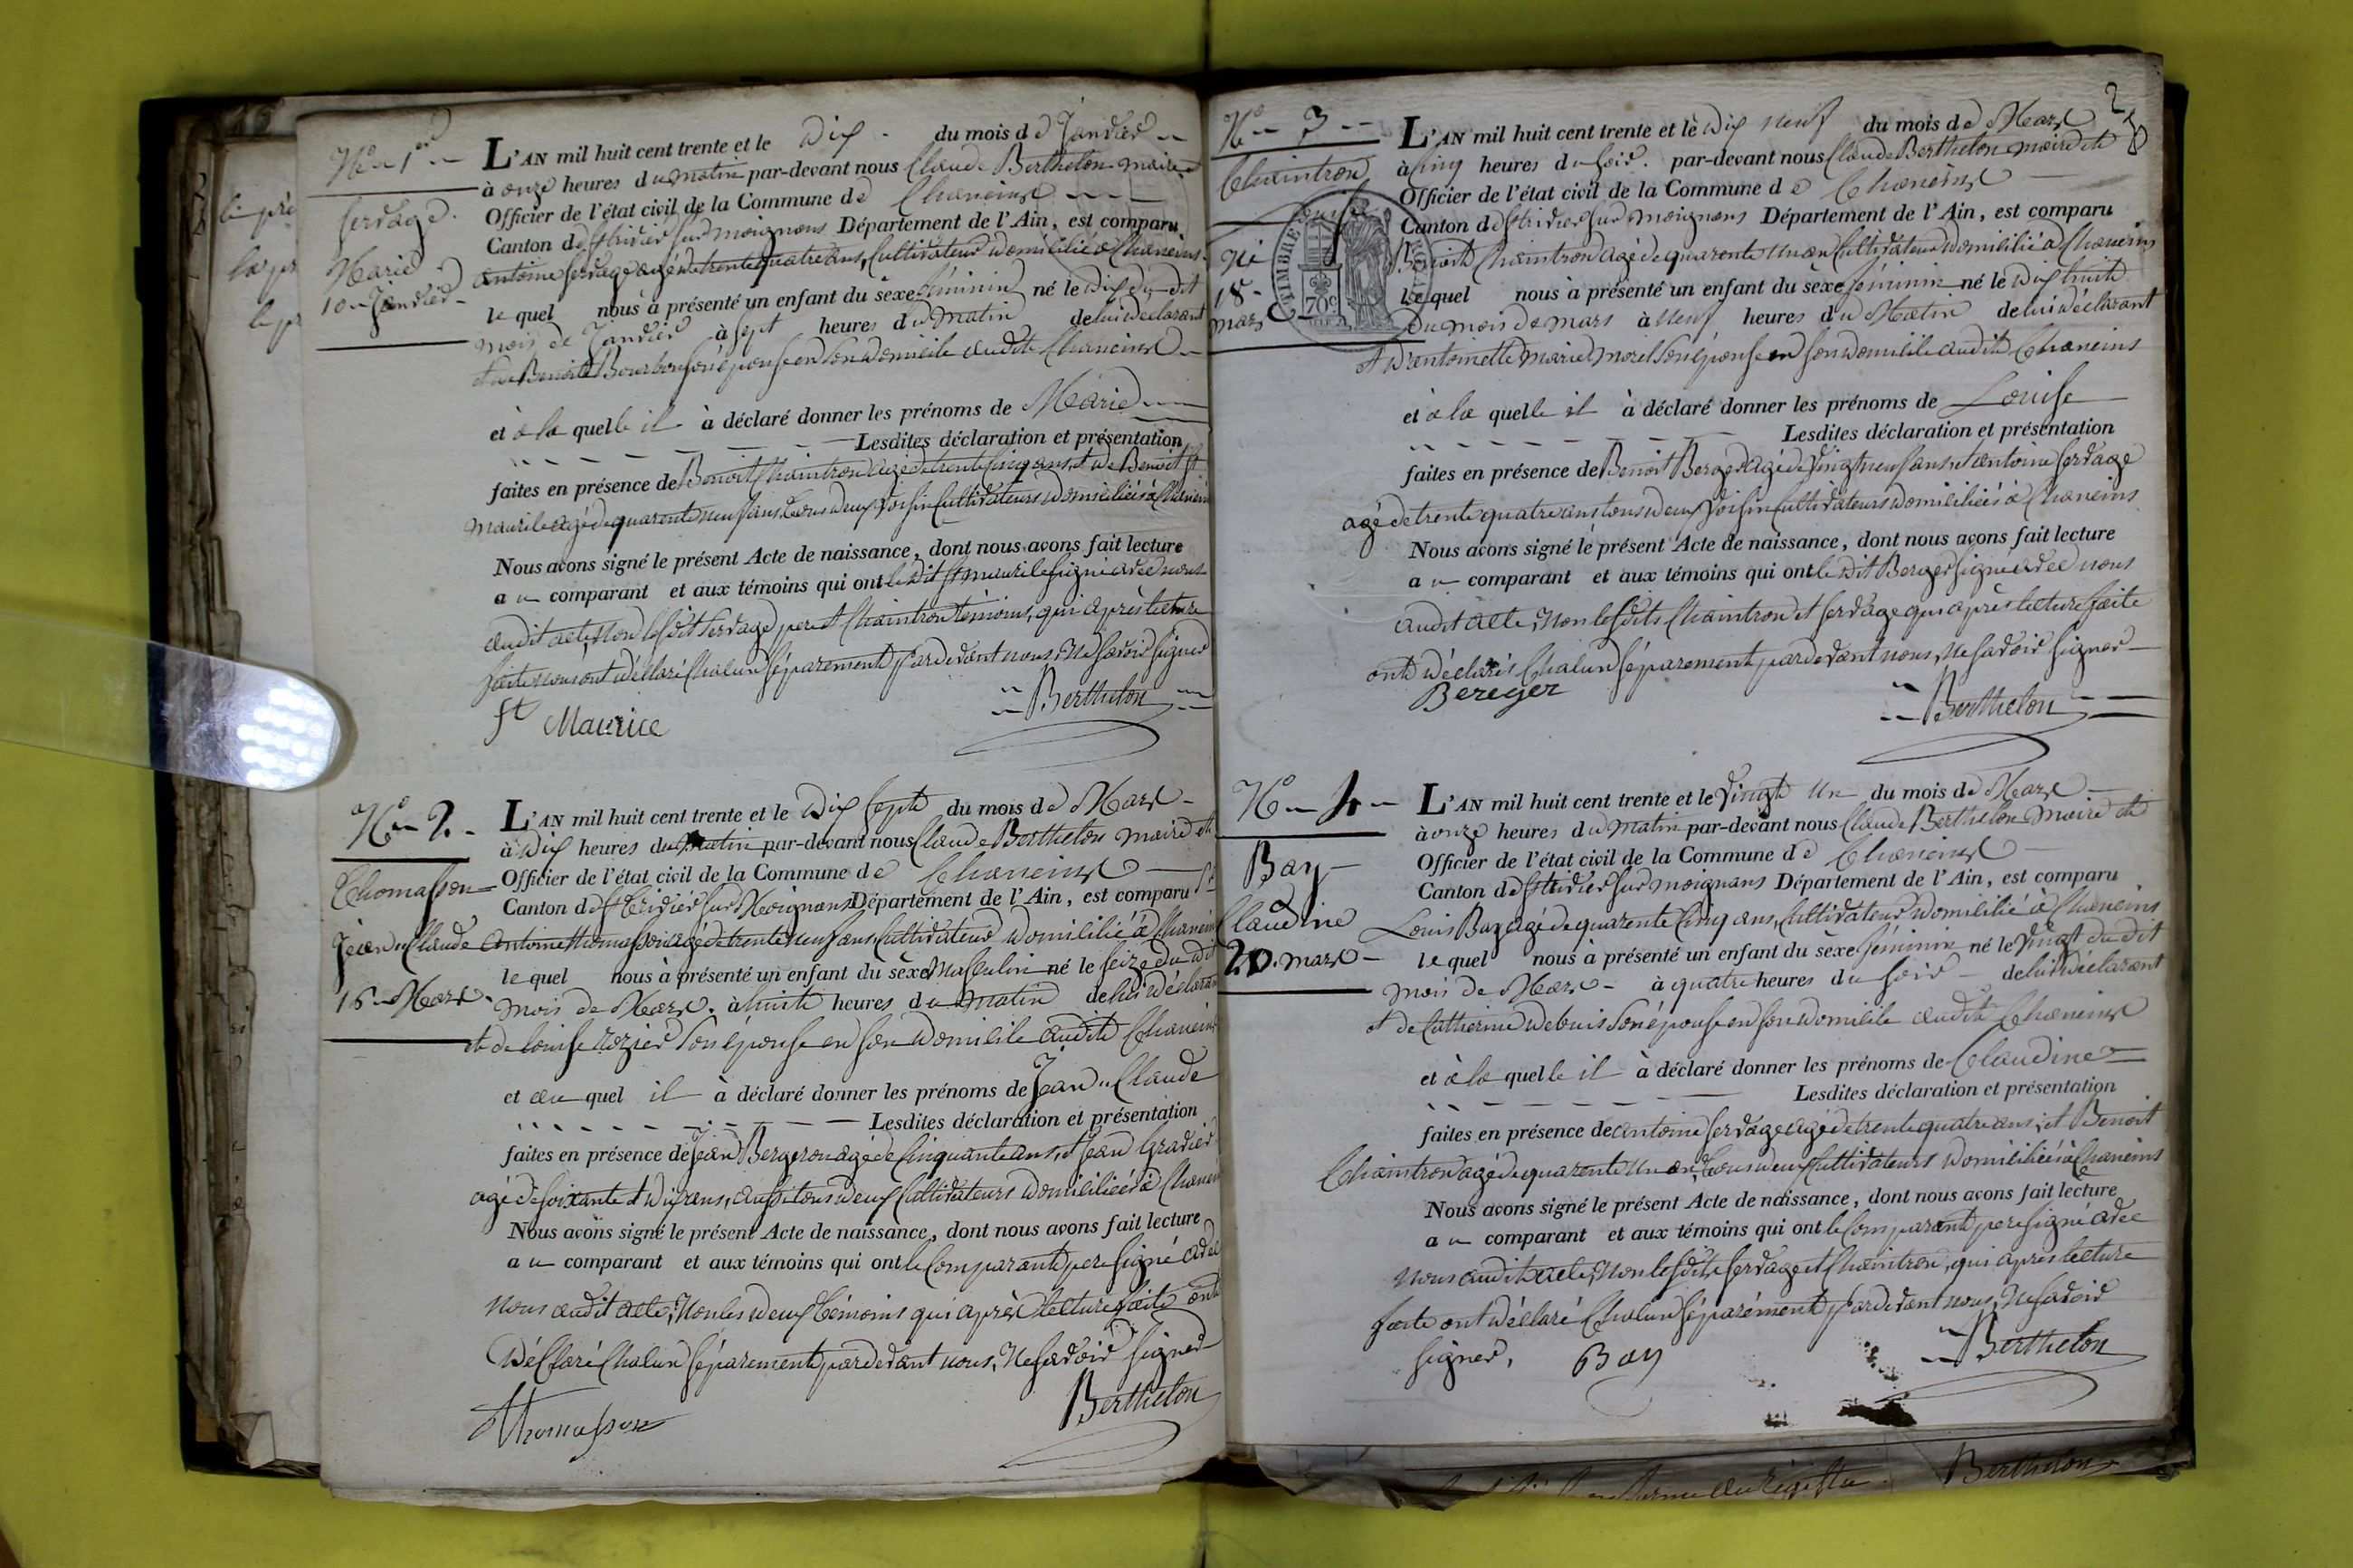 N.o 1er
Servage.
Marie
10 Janvier
L'AN mil huit cent trente et le Dix du mois de Janvier
à onze heures du matin par-devant nous Claude Berthelon maire et
Officier de l'état civil de la Commune de Chaneins
Canton de St trivier sur moignans Département de l'Ain, est comparu
antoine Servage agé de trente quatre ans, Cultivateur domicilié à Chaneins
le quel nous à présenté un enfant du sèxe féminin né le dix du dit
mois de Janvier à sept heures du matin de lui déclarant
et de Benoite Bourbon son épouse en son domicile audit Chaneins
et à la quelle il à déclaré donner les prénoms de Marie
Lesdites déclaration et présentation
faites en présence de Benoit Chaintron agé de trente cinq ans, et de Benoit St
maurile agé de quarente neuf ans, tous deux voisin Cultivateurs domiciliés à Chaneins
Nous avons signé le présent Acte de naissance, dont nous avons fait lecture
au comparant et aux témoins qui ont le dit St maurile signé avec nous
audit acte, Non lesdit Servage pere et Chaintron témoins, qui après lecture
faite nous ont déclaré Chalun séparement pardevant nous, Ne savoir signer
St Maurice Berthelon
N.o 2.
Thomasson
Jean Claude
16 Mars
L'AN mil huit cent trente et le Dix sept du mois de Mars
à Dix heures du Matin par-devant nous Claude Berthelon maire et
Officier de l'état civil de la Commune de Chaneins
Canton de St Trivier sur Moignans Département de l'Ain, est comparu
antoine thomasson agé de trente neuf ans, Cultivateur domicilié à Chaneins
le quel nous à présenté un enfant du sèxe Masculin né le seize du dit
mois de Mars. à huit heures du matin de lui déclarant
et de louise rozier son épouse en son domicile audit Chaneins
et au quel il à déclaré donner les prénoms de Jean Claude
Lesdites déclaration et présentation
faites en présence de Jean Bergeron agé de Cinquante ans, et Jean Gravier
agé de soixante et dix ans, aussi tous deux Cultivateurs domiciliés à Chaneins
Nous avons signé le présent Acte de naissance, dont nous avons fait lecture
au comparant et aux témoins qui ont le Comparant pere signé avec
nous audit acte, Non les deux témoins qui après lecture faite ont
déclaré Chalun séparement pardevant nous, Ne savoir signer
Thomasson Berthelon
2
N.o 3
Chaintron
né
18
mars
TIMBRE
70c
L'AN mil huit cent trente et le dix neuf du mois de Mars
à Cinq heures du soir. par-devant nous Claude Berthelon maire et
Officier de l'état civil de la Commune de Chaneins
Canton de St trivier sur moignans Département de l'Ain, est comparu
Benoit Chaintron agé de quarente un an Cultivateur domicilié à Chaneins
le quel nous à présenté un enfant du sèxe féminin né le Dix huit
du mois de mars à neuf heures du Matin de lui déclarant
et d'antoinette marie morel son épouse en son domicile audit Chaneins
et à la quelle il à déclaré donner les prénoms de Louise
Lesdites déclaration et présentation
faites en présence de Benoit Berger agé de vingt neuf ans et antoine Servage
agé de trente quatre ans tous deux voisin Cultivateurs domiciliés à Chaneins
Nous avons signé le présent Acte de naissance, dont nous avons fait lecture
au comparant et aux témoins qui ont le dit Berger signé avec nous
audit acte, Non lesdits Chaintron et Servage qui après lecture faite
ont déclarés Chalun séparement pardevant nous, Ne savoir signer
Bereger Berthelon
N. 4
Bay
Claudine
20. mars
L'AN mil huit cent trente et le vingt un du mois de Mars
à onze heures du matin par-devant nous Claude Berthelon Maire et
Officier de l'état civil de la Commune de Chaneins
Canton de St trivier sur moignans Département de l'Ain, est comparu
Louis Bay agé de quarente Cinq ans, Cultivateur domicilié à Chaneins
le quel nous à présenté un enfant du sèxe féminin né le vingt du dit
mois de Mars à quatre heures du soir de lui déclarant
et de Catherine debuis son épouse en son domicile audit Chaneins
et à la quelle il à déclaré donner les prénoms de Claudine
Lesdites déclaration et présentation
faites en présence de antoine Servage agé de trente quatre ans, et Benoit
Chaintron agé de quarente un an, tous deux Cultivateurs domiciliés à Chaneins
Nous avons signé le présent Acte de naissance, dont nous avons fait lecture
au comparant et aux témoins qui ont le Comparant pere signé avec
nous audit acte, Non lesdits Servage et Chaintron, qui après lecture
faite ont déclaré Chalun séparément pardevant nous, Ne savoir
signer, Bay Berthelon
Berthelon